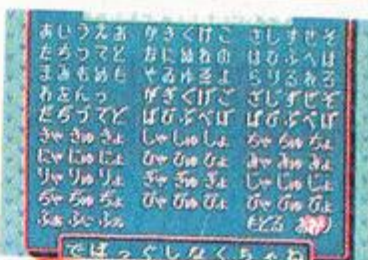 あいうえお かきくけこ さしすせそ
たちつてと なにぬねの はひふへほ
まみむめも やるゆるよ らりるれろ
わをんっ がぎぐげご ざじずぜぞ
だぢづでど ばびぶべぼ ぱぴぷぺぽ
きゃ きゅ きょ しゃ しゅ しょ ちゃ ちゅ ちょ
にゃ にゅ にょ ひゃ ひゅ ひょ みゃ みゅ みょ
りゃ りゅ りょ ぎゃ ぎゅ ぎょ じゃ じゅ じょ
ぢゃ ぢゅ ぢょ びゃ びゅ びょ ぴゃ ぴゅ ぴょ
もどる おわり
でばっぐしなくちゃね